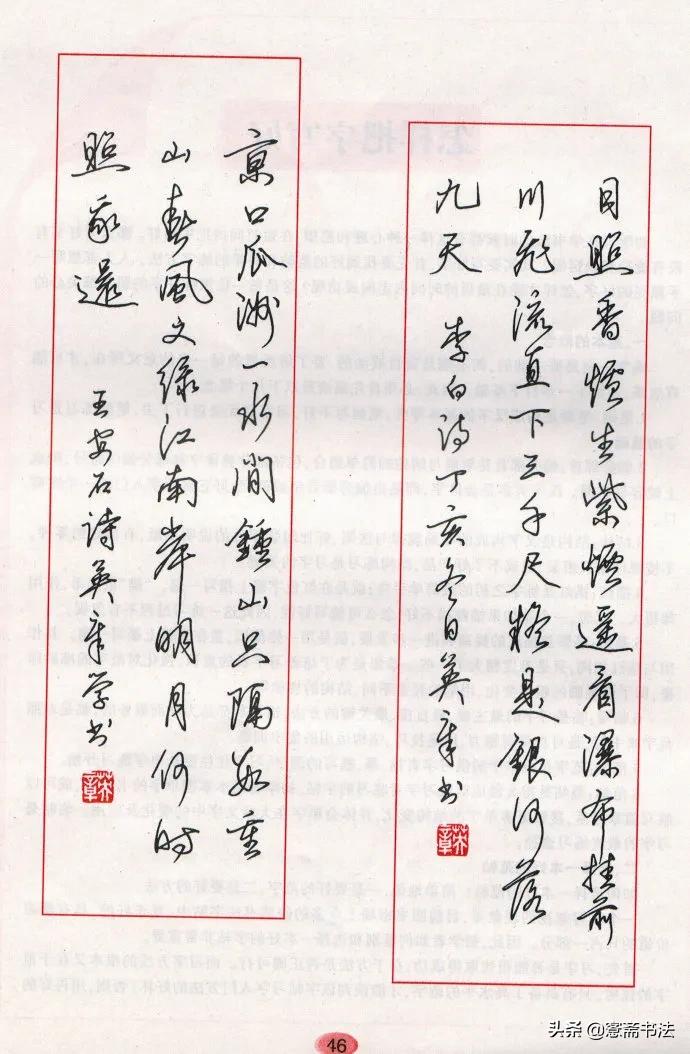 日照香炉生紫烟遥看瀑布挂前
川飞流直下三千尺疑是银河落
九天 李白诗丁亥冬月英章书
京口瓜洲一水间鍾山只隔数重
山春風又绿江南岸明月何时
照我還 王安石詩英章书
46
头条 @斋书法